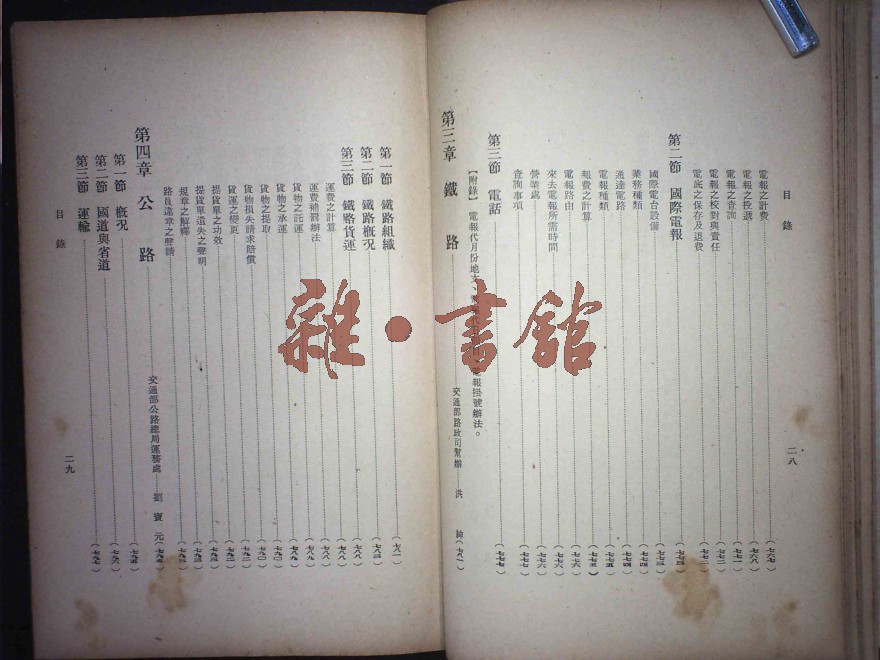 目錄
二八
電報之計費 (七六七)
電報之投遞 (七六八)
電報之查詢 (七七一)
電報之校對與責任 (七七二)
電底之保存及退費 (七七二)
第二節 國際電報
國際電台設備
業務種類 (七七四)
通達電路 (七七四)
電報種類 (七七五)
報費之計算 (七七五)
電報路由 (七七六)
來去電報所需時間 (七七六)
營業處 (七七六)
查詢事項 (七七七)
第三節 電話 (七七七)
【附錄】電報代月份地支、
電報掛號辦法。
第三章 鐵路
交通部路政司幫辦 洪
(七八一)
第一節 鐵路組織 (七八一)
第二節 鐵路概況 (七八三)
第三節 鐵路貨運 (七八八)
運費之計算 (七八八)
運費補罰辦法 (七八九)
貨物之託運 (七八九)
貨物之承運 (七九〇)
貨物之提取 (七九一)
貨物損失請求賠償 (七九二)
貨運之變更 (七九二)
提貨單之功效 (七九三)
提貨單遺失之聲明 (七九三)
規章之解釋 (七九三)
路員違章之聲請
第四章 公路
交通部公路總局運務處 劉寶元
(七九五)
第一節 概況 (七九五)
第二節 國道與省道 (七九六)
第三節 運輸 (七九七)
目錄
二九
雜·書館